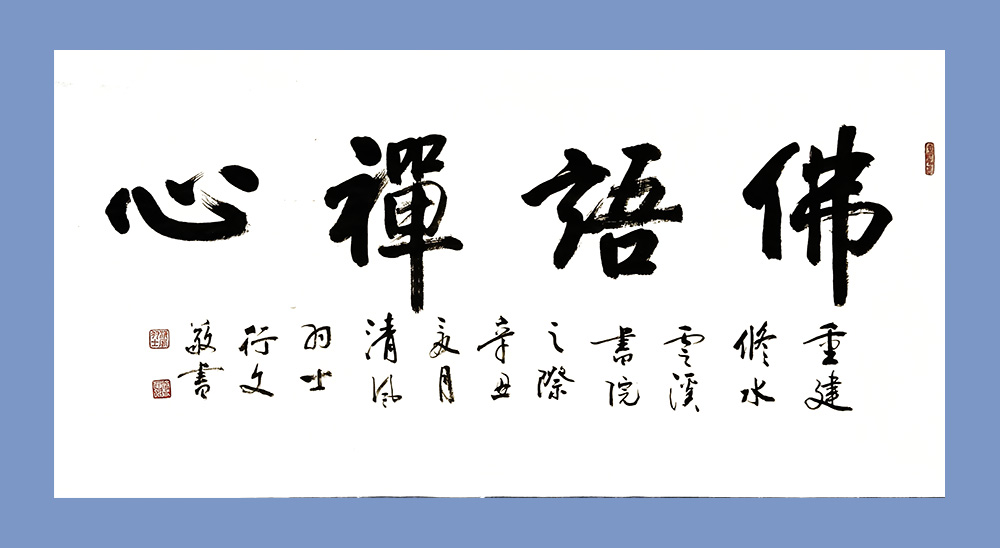 佛語禪心
重建
修水
雲溪
書院
之際
辛丑
亥月
清風
羽士
行文
敬書